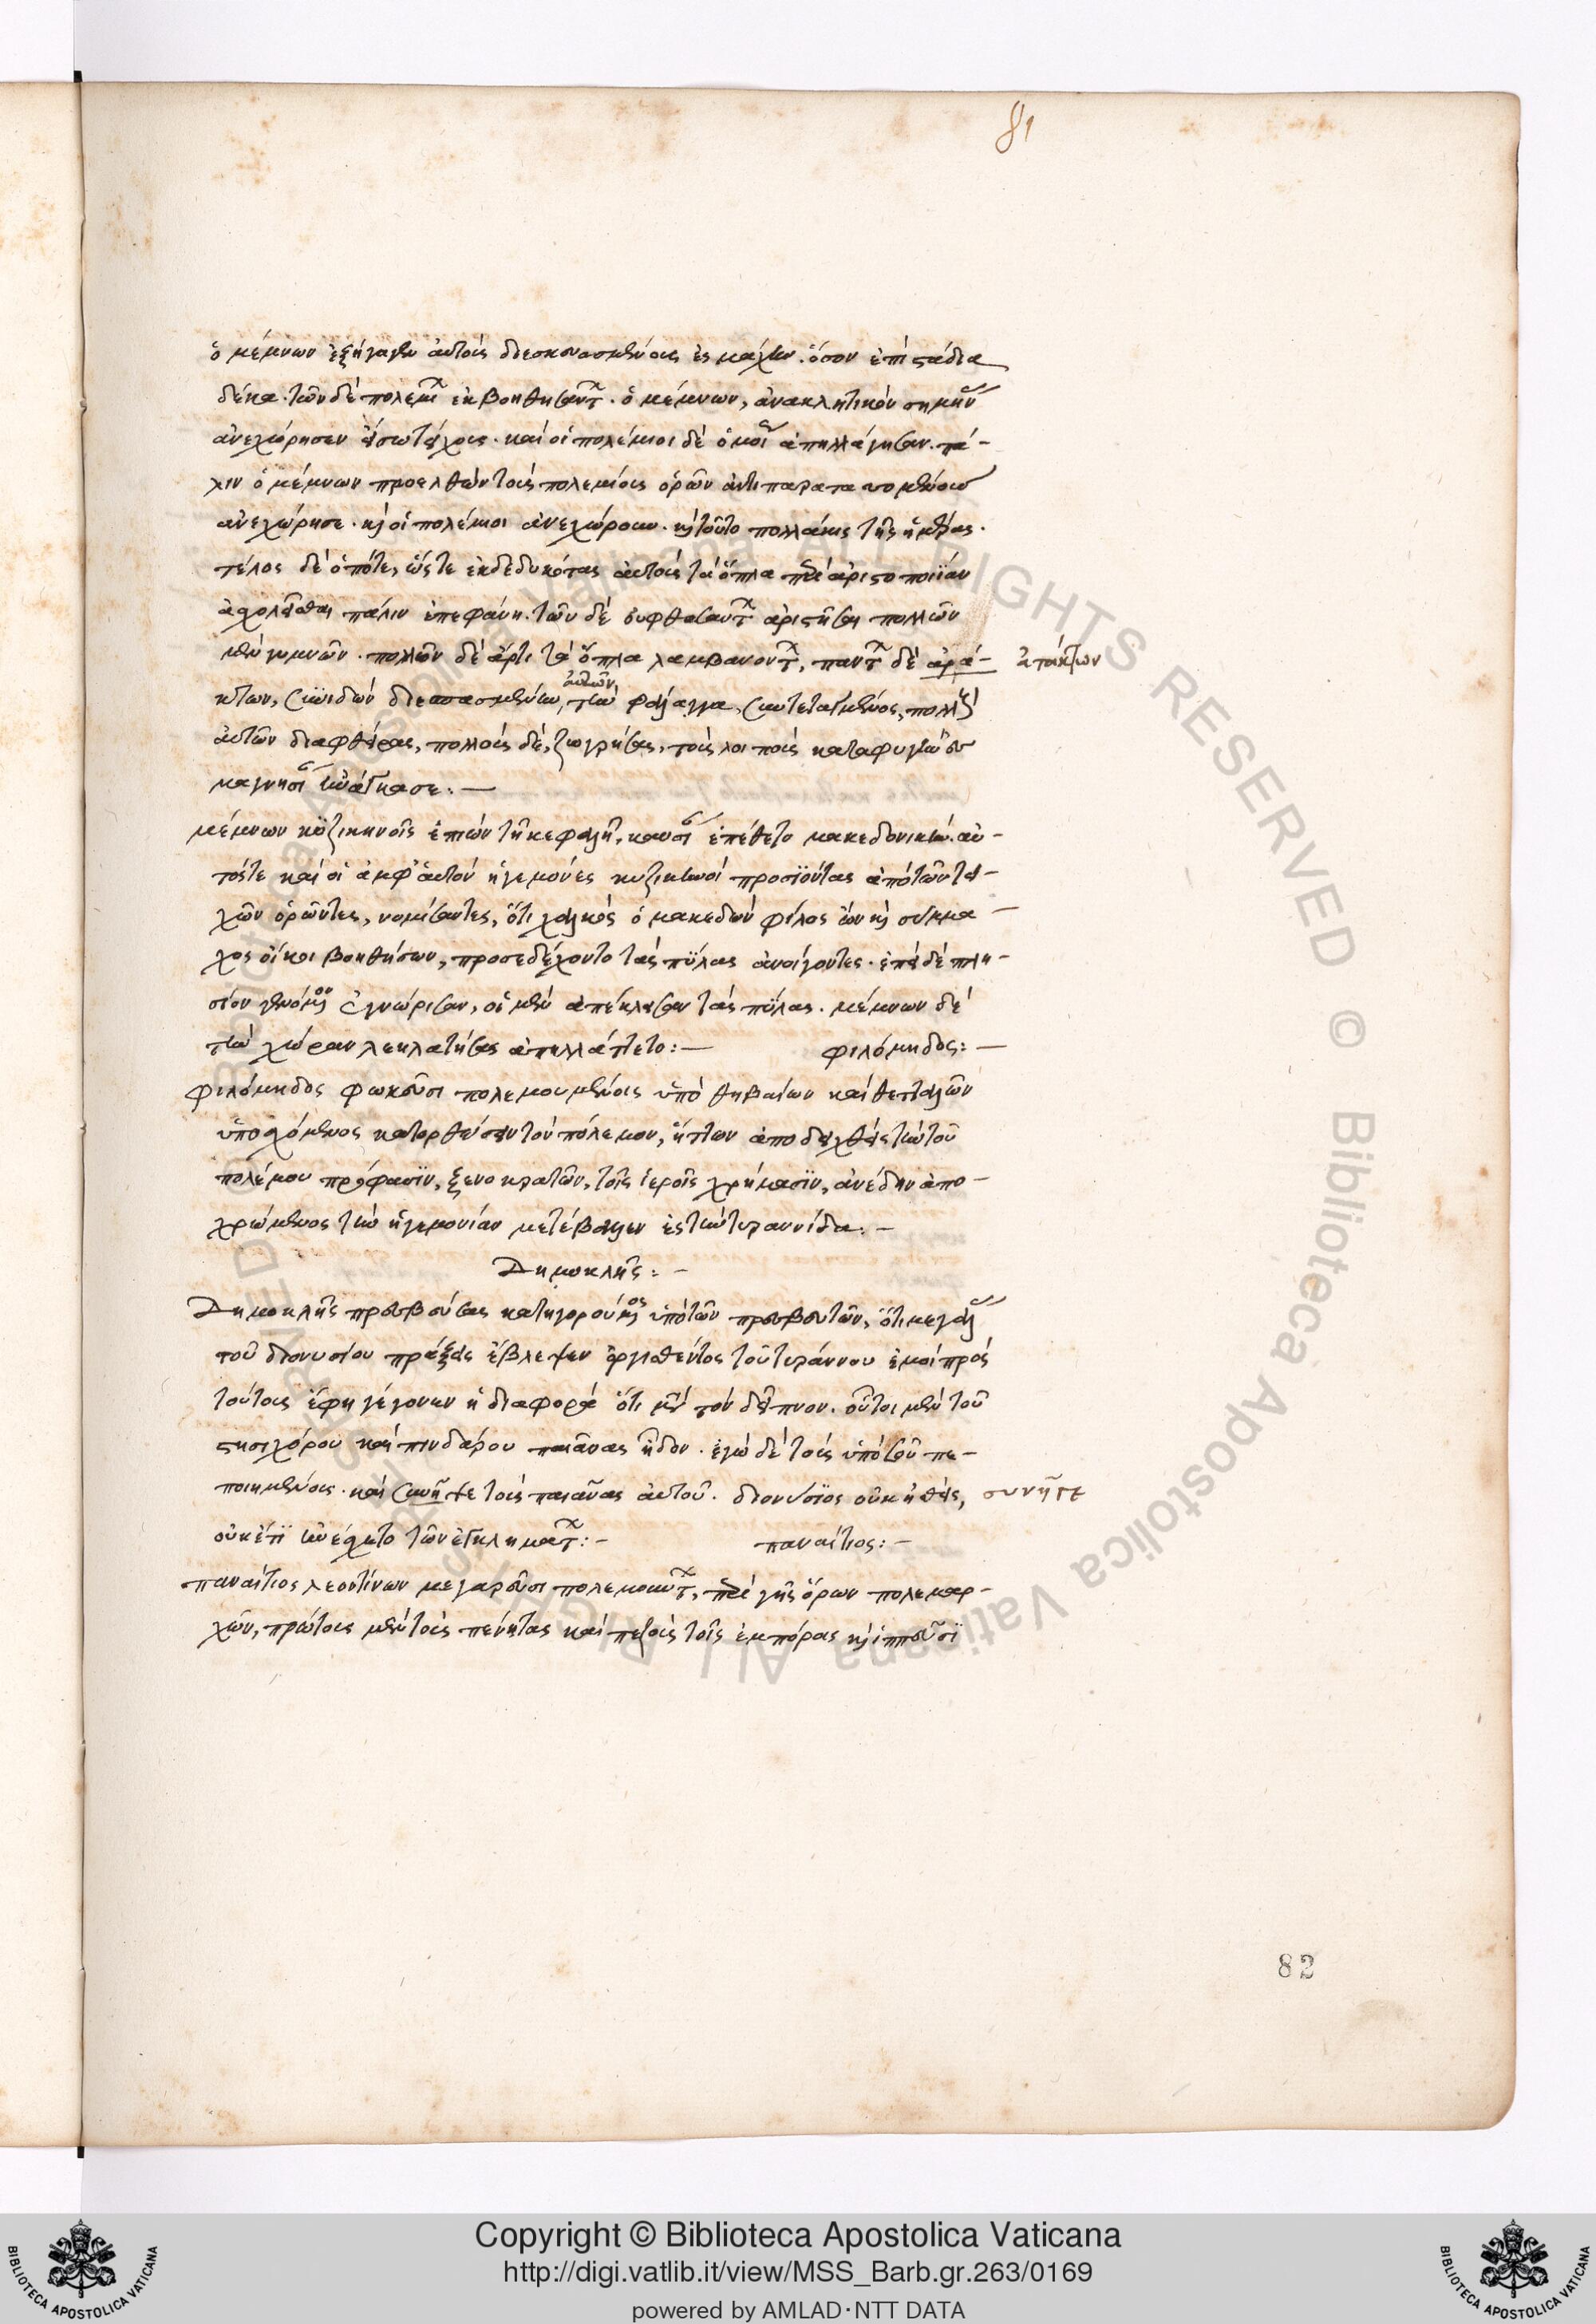 81
ὁ μέμνων ἐξήγαγεν αὐτοὺς διεσκευασμένους ἐς μάχην. ὅσον ἐπὶ στάδια
δέκα. τῶν δὲ πολεμίων ἐκβοηθησάντων. ὁ μέμνων, ἀνακλητικὸν σημήνας
ἀνεχώρησεν εἴσω τείχους. καὶ οἱ πολέμιοι δὲ ὁμοίως ἀπηλλάγησαν. πά-
λιν ὁ μέμνων προελθὼν τοὺς πολεμίους ὁρῶν ἀντιπαρατασσομένους
ἀνεχώρησε. καὶ οἱ πολέμιοι ἀνεχώρουν. καὶ τοῦτο πολλάκις τῆς ἡμέρας.
τέλος δὲ ὁπότε, ὥστε ἐκδεδυκότας αὐτοὺς τὰ ὅπλα περὶ ἀριστοποιΐαν
ἀσχολεῖσθαι πάλιν ἐπεφάνη. τῶν δὲ οὐ φθασάντων ἀριστῆσαι πολλῶν
μὲν γυμνῶν. πολλῶν δὲ ἄρτι τὰ ὅπλα λαμβανόντων, πάντων δὲ ἀρά- ἀτάκτων
κτων, συνιδὼν διεσπασμένην, αὐτῶν τὴν φάλαγγα, συντεταγμένος, πολλοὺς
αὐτῶν διαφθείρας, πολλοὺς δὲ, ζωγρήσας, τοὺς λοιποὺς καταφυγεῖν εἰς
μαγνησίαν ἠνάγκασε:—
μέμνων κυζικηνοῖς ἐπιὼν τῇ κεφαλῇ, καυσίαν ἐπέθετο μακεδονικήν. αὐ-
τός τε καὶ οἱ ἀμφ' αὐτὸν ἡγεμόνες κυζικηνοὶ προσϊόντας ἀπὸ τῶν τει-
χῶν ὁρῶντες, νομίσαντες, ὅτι χαλκὸς ὁ μακεδὼν φίλος ὢν καὶ σύμμα-
χος οἵκοι βοηθήσων, προσεδέχοντο τὰς πύλας ἀνοίγοντες. ἐπεὶ δὲ πλη-
σίον γενόμενον ἐγνώρισαν, οἱ μὲν ἀπέκλεισαν τὰς πύλας. μέμνων δὲ
τὴν χώραν λεηλατήσας ἀπηλλάττετο:— φιλόμηδος:—
Φιλόμηδος φωκεῦσι πολεμουμένοις ὑπὸ θηβαίων καὶ θετταλῶν
ὑποσχόμενος κατορθώσειν τὸν πόλεμον, ἥττων ἀποδειχθεὶς τὴν τοῦ
πολέμου πρόφασϊν, ξενοκρατῶν, τοῖς ἱεροῖς χρήμασϊν, ἀνέδην ἀπο-
χρώμενος τὴν ἡγεμονίαν μετέβαλεν ἐς τὴν τυραννίδα:—
Δημοκλῆς:—
Δημοκλῆς πρεσβεύσας κατηγορούμενος ὑπὸ τῶν πρεσβευτῶν, ὅτι μεγάλας
τοῦ διονυσίου πράξεις ἔβλεψεν ὀργισθέντος τοῦ τυράννου ἐμοὶ πρὸς
τούτους ἔφη γέγονεν ἡ διαφορὰ ὅτι μετὰ τὸν δεῖπνον. οὗτοι μὲν τοῦ
στησιχόρου καὶ πινδάρου παιᾶνας ᾖδον. ἐγὼ δὲ τοὺς ὑπὸ σοῦ πε-
ποιημένους. καὶ συνῆψε τοὺς παιᾶνας αὐτοῦ. διονύσϊος οὖν ἡσθεὶς, συνῆπτε
οὐκέτϊ ἠνέσχετο τῶν ἐγκλημάτων:— παναίτιος:—
παναίτιος λεοντίνων μεγαρεῦσι πολεμούντων, περὶ γῆς ὅρων πολεμαρ-
χῶν, πρώτους μὲν τοὺς πένητας καὶ πεζοὺς τοῖς ἐμπόροις καὶ ἱππεῦσϊ
82
Copyright © Biblioteca Apostolica Vaticana
http://digi.vatlib.it/view/MSS_Barb.gr.263/0169
powered by AMLAD·NTT DATA